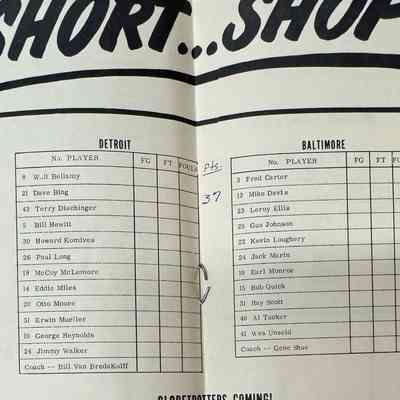 SHORT...SHOP
DETROIT
No. PLAYER FG FT FOULS
8 Walt Bellamy
21 Dave Bing
43 Terry Dischinger
5 Bill Hewitt
30 Howard Komives
26 Paul Long
19 McCoy McLemore
14 Eddie Miles
20 Otto Moore
31 Erwin Mueller
10 George Reynolds
24 Jimmy Walker
Coach -- Bill Van BredaKolff
Pts.
37
BALTIMORE
No. PLAYER FG FT
3 Fred Carter
12 Mike Davis
23 Leroy Ellis
25 Gus Johnson
22 Kevin Loughery
24 Jack Marin
10 Earl Monroe
15 Bob Quick
31 Ray Scott
40 Al Tucker
41 Wes Unseld
Coach -- Gene Shue
GLOBETROTTERS COMING!